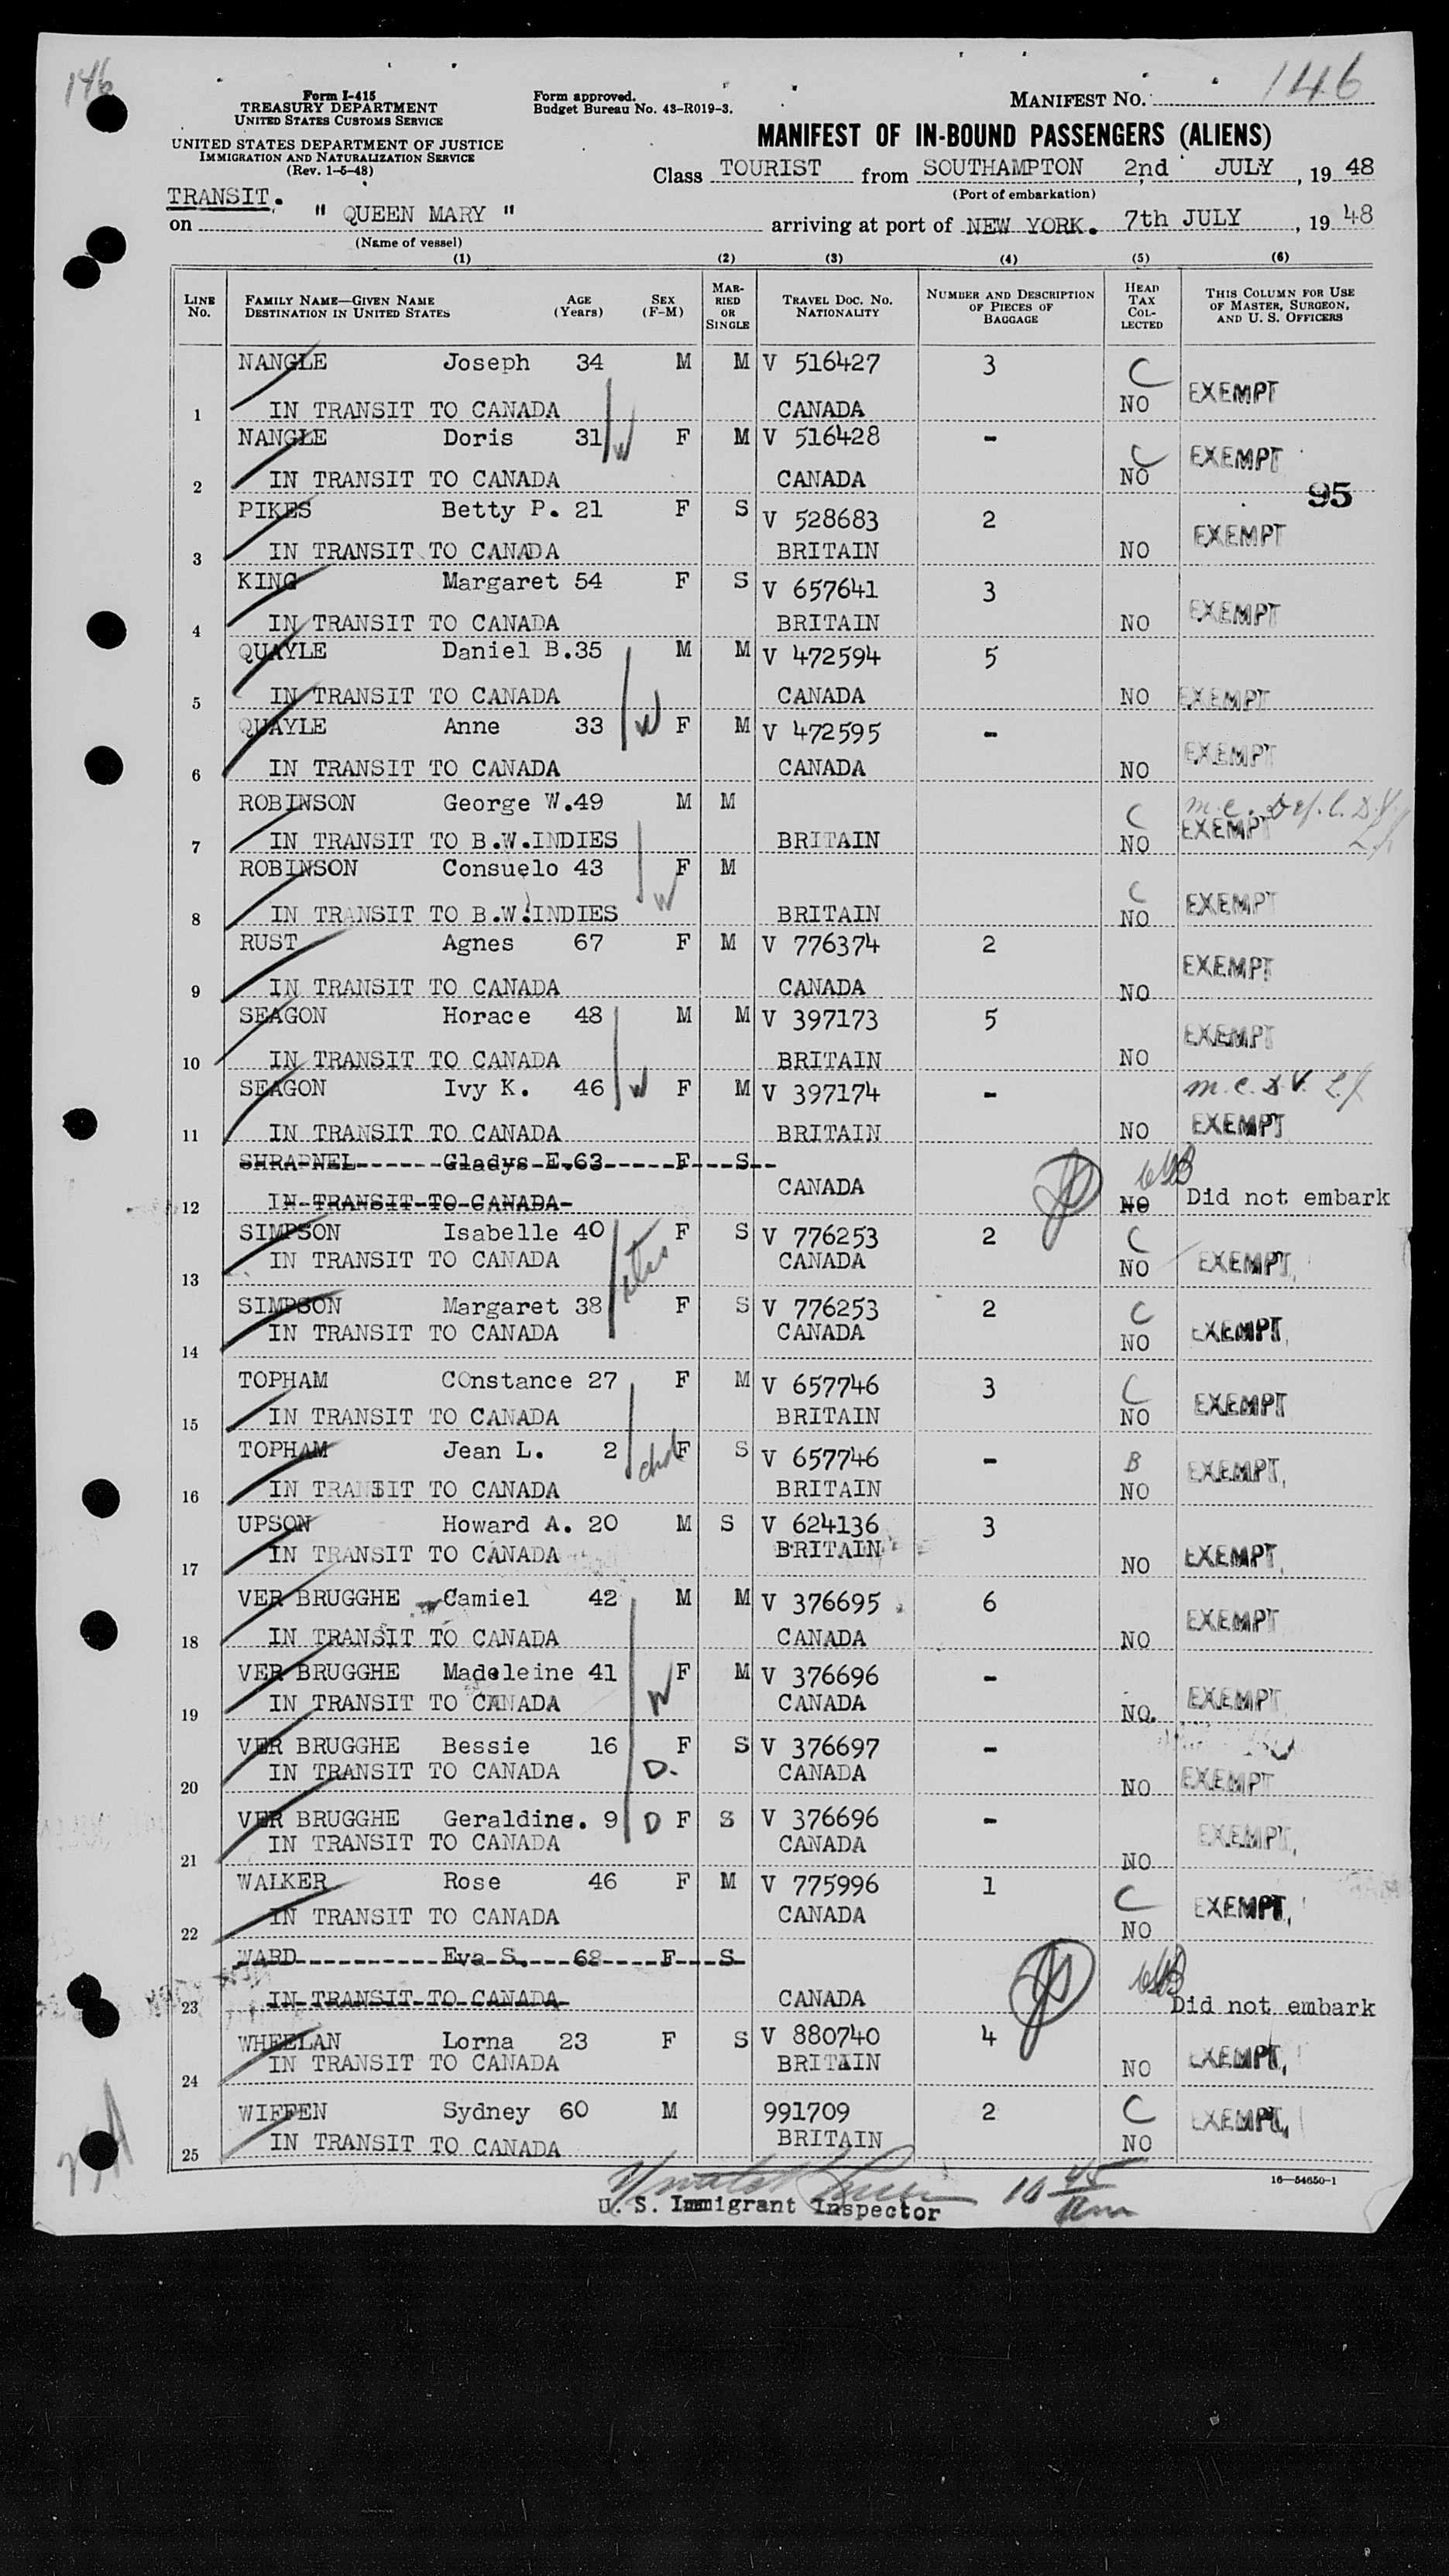 146
Form I-415
TREASURY DEPARTMENT
UNITED STATES CUSTOMS SERVICE
UNITED STATES DEPARTMENT OF JUSTICE
IMMIGRATION AND NATURALIZATION SERVICE
(Rev. 1-5-48)
Form approved.
Budget Bureau No. 43-R019-3.
MANIFEST NO. 146
MANIFEST OF IN-BOUND PASSENGERS (ALIENS)
Class TOURIST from SOUTHAMPTON 2nd JULY, 19 48
(Port of embarkation)
TRANSIT.
on " QUEEN MARY " arriving at port of NEW YORK. 7th JULY, 19 48
(Name of vessel)
(1) (2) (3) (4) (5) (6)
LINE No. FAMILY NAME—GIVEN NAME DESTINATION IN UNITED STATES AGE (Years) SEX (F-M) MARRIED OR SINGLE TRAVEL DOC. NO. NATIONALITY NUMBER AND DESCRIPTION OF PIECES OF BAGGAGE HEAD TAX COLLECTED THIS COLUMN FOR USE OF MASTER, SURGEON, AND U. S. OFFICERS
NANGLE Joseph 34 M M V 516427 3 C
1 IN TRANSIT TO CANADA CANADA NO EXEMPT
NANGLE Doris 31 W F M V 516428 - C
2 IN TRANSIT TO CANADA CANADA NO EXEMPT
95
PIKES Betty P. 21 F S V 528683 2
3 IN TRANSIT TO CANADA BRITAIN NO EXEMPT
KING Margaret 54 F S V 657641 3
4 IN TRANSIT TO CANADA BRITAIN NO EXEMPT
QUAYLE Daniel B. 35 M M V 472594 5
5 IN TRANSIT TO CANADA CANADA NO EXEMPT
QUAYLE Anne 33 W F M V 472595 -
6 IN TRANSIT TO CANADA CANADA NO EXEMPT
ROBINSON George W. 49 M M C m.c.
7 IN TRANSIT TO B.W.INDIES BRITAIN NO EXEMPT
ROBINSON Consuelo 43 W F M C
8 IN TRANSIT TO B.W.INDIES BRITAIN NO EXEMPT
RUST Agnes 67 F M V 776374 2
9 IN TRANSIT TO CANADA CANADA NO EXEMPT
SEAGON Horace 48 M M V 397173 5
10 IN TRANSIT TO CANADA BRITAIN NO EXEMPT
SEAGON Ivy K. 46 W F M V 397174 - m.c. D.V.
11 IN TRANSIT TO CANADA BRITAIN NO EXEMPT
SHRAPNEL Gladys E. 63 F S
12 IN TRANSIT TO CANADA CANADA NO Did not embark
SIMPSON Isabelle 40 F S V 776253 2 C
13 IN TRANSIT TO CANADA CANADA NO EXEMPT
SIMPSON Margaret 38 F S V 776253 2 C
14 IN TRANSIT TO CANADA CANADA NO EXEMPT
TOPHAM COnstance 27 F M V 657746 3 C
15 IN TRANSIT TO CANADA BRITAIN NO EXEMPT
TOPHAM Jean L. 2 F S V 657746 - B
16 IN TRANSIT TO CANADA BRITAIN NO EXEMPT
UPSON Howard A. 20 M S V 624136 3
17 IN TRANSIT TO CANADA BRITAIN NO EXEMPT
VER BRUGGHE Camiel 42 M M V 376695 6
18 IN TRANSIT TO CANADA CANADA NO EXEMPT
VER BRUGGHE Madeleine 41 W F M V 376696 -
19 IN TRANSIT TO CANADA CANADA NO. EXEMPT
VER BRUGGHE Bessie 16 F S V 376697 -
20 IN TRANSIT TO CANADA D. CANADA NO EXEMPT
VER BRUGGHE Geraldine. 9 D F S V 376696 -
21 IN TRANSIT TO CANADA CANADA NO EXEMPT
WALKER Rose 46 F M V 775996 1 C
22 IN TRANSIT TO CANADA CANADA NO EXEMPT
WARD Eva S. 68 F S
23 IN TRANSIT TO CANADA CANADA Did not embark
WHEELAN Lorna 23 F S V 880740 4
24 IN TRANSIT TO CANADA BRITAIN NO EXEMPT
WIFFEN Sydney 60 M 991709 2 C
25 IN TRANSIT TO CANADA BRITAIN NO EXEMPT
16—54650-1
10 45 am
U. S. Immigrant Inspector